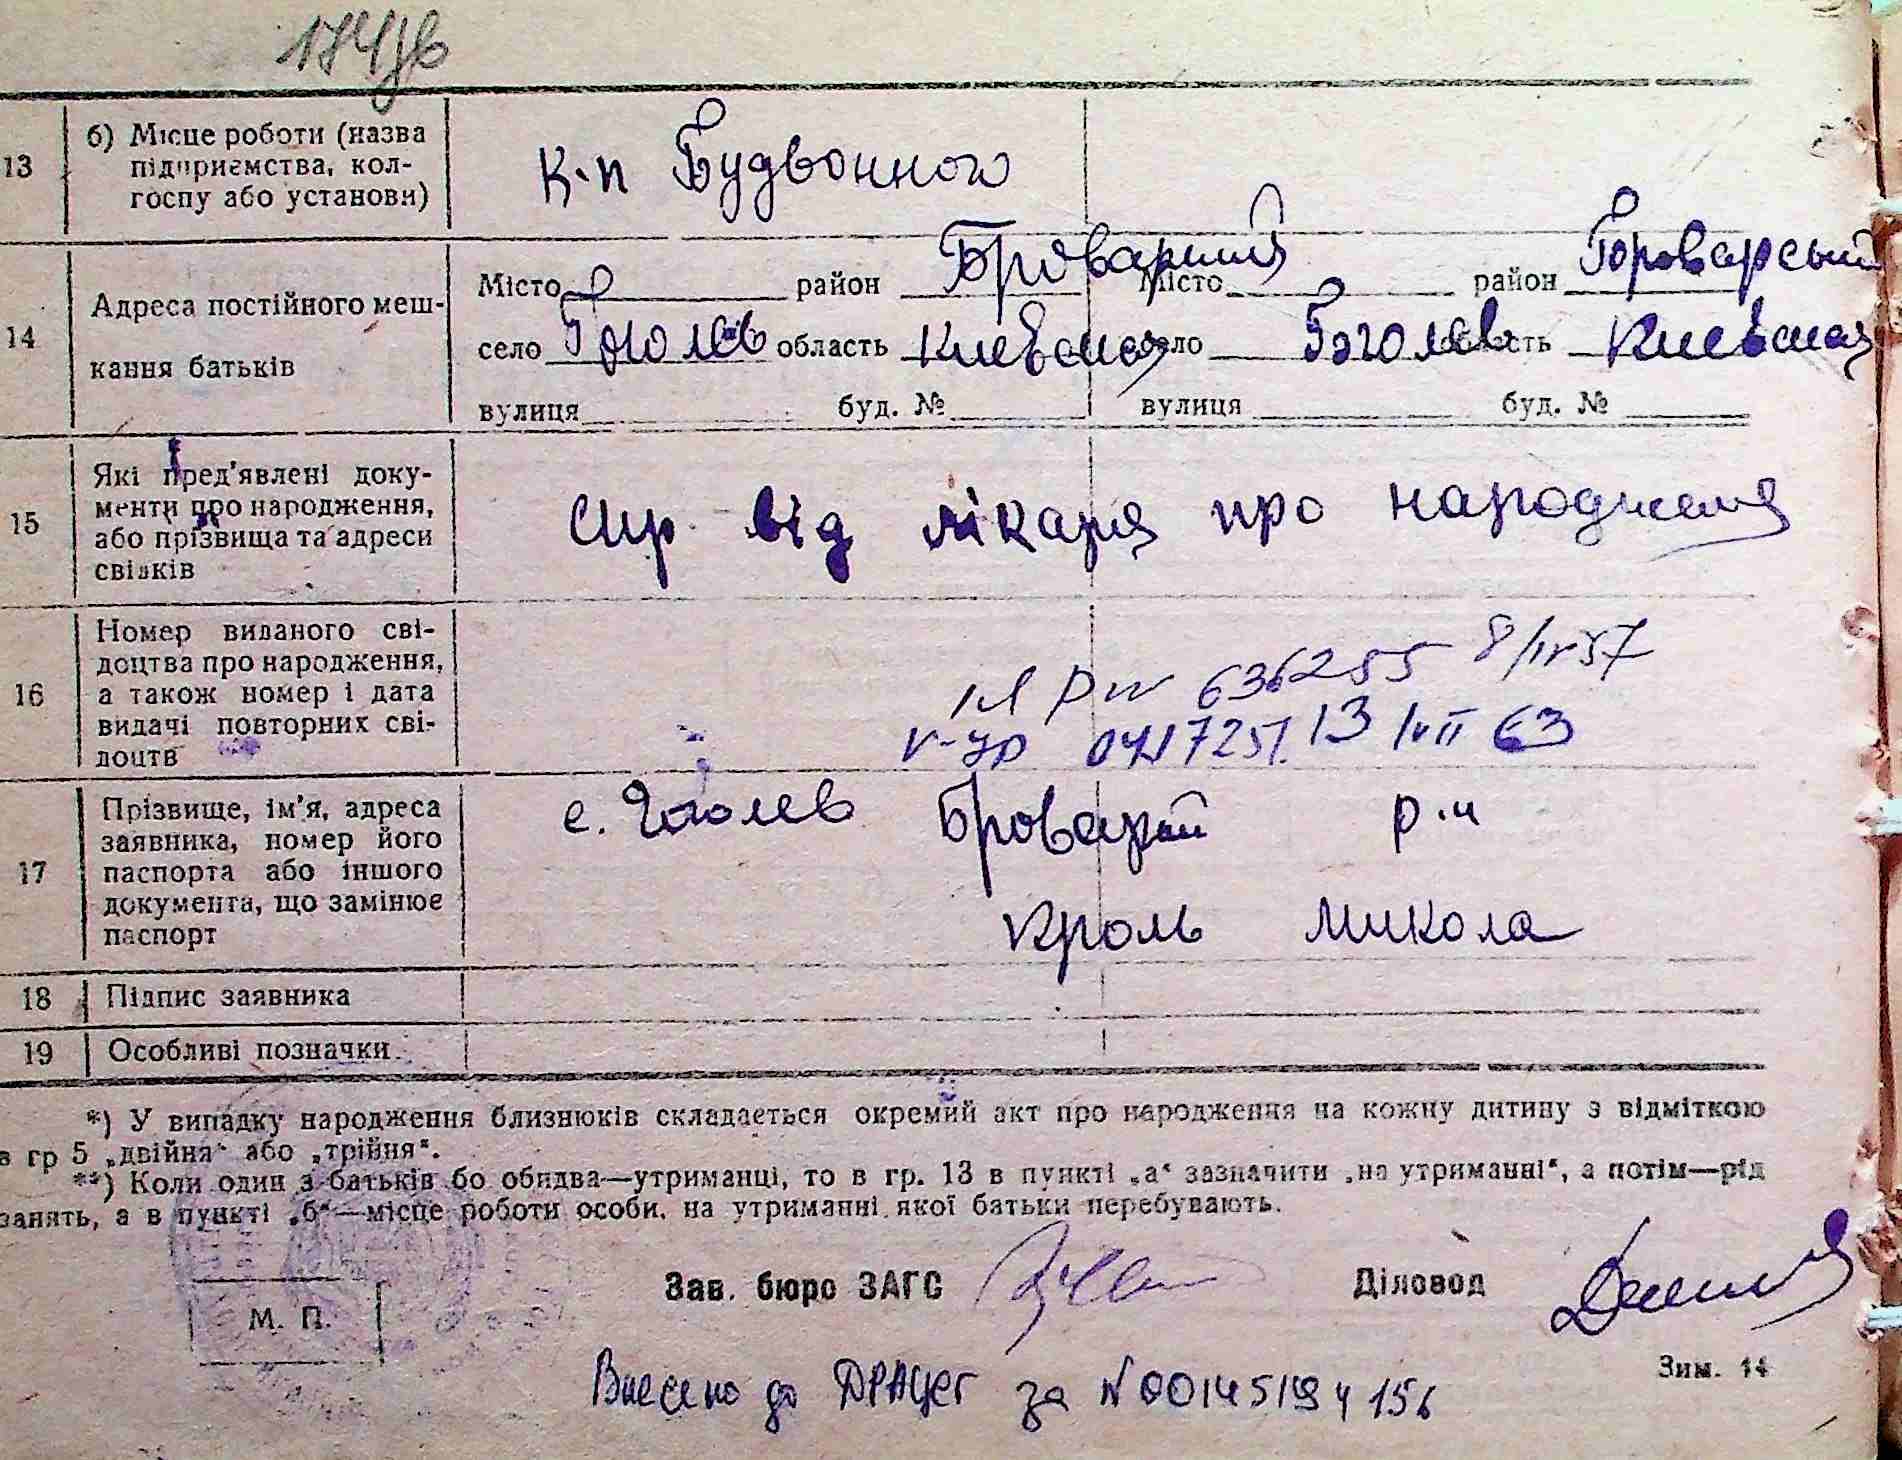 13 б) Місце роботи (назва підприємства, колгоспу або установи) к-п Будьонного
14 Адреса постійного мешкання батьків
Місто район Броварський Місто район Броварський
село Гоголев область Киевская село Гоголев область Киевская
вулиця буд. № вулиця буд. №
15 Які пред'явлені документи про народження, або прізвища та адреси свідків
від лікаря про народження
16 Номер виданого свідоцтва про народження, а також номер і дата видачі повторних свідоцтв
636255 8/IV 57
0417251. 13 63
17 Прізвище, ім'я, адреса заявника, номер його паспорта або іншого документа, що замінює паспорт
с. Гоголев Броварский р-н
Кроль Микола
18 Підпис заявника
19 Особливі позначки
*) У випадку народження близнюків складається окремий акт про народження на кожну дитину з відміткою
в гр 5 „двійня“ або „трійня“.
**) Коли один з батьків бо обидва—утриманці, то в гр. 13 в пункті „а“ зазначити „на утриманні“, а потім—рід
занять, а в пункті „б“—місце роботи особи, на утриманні якої батьки перебувають.
Зав. бюро ЗАГС Діловод
М. П.
Зим. 14
Внесено до ДРАЦСГ за N 00145194156